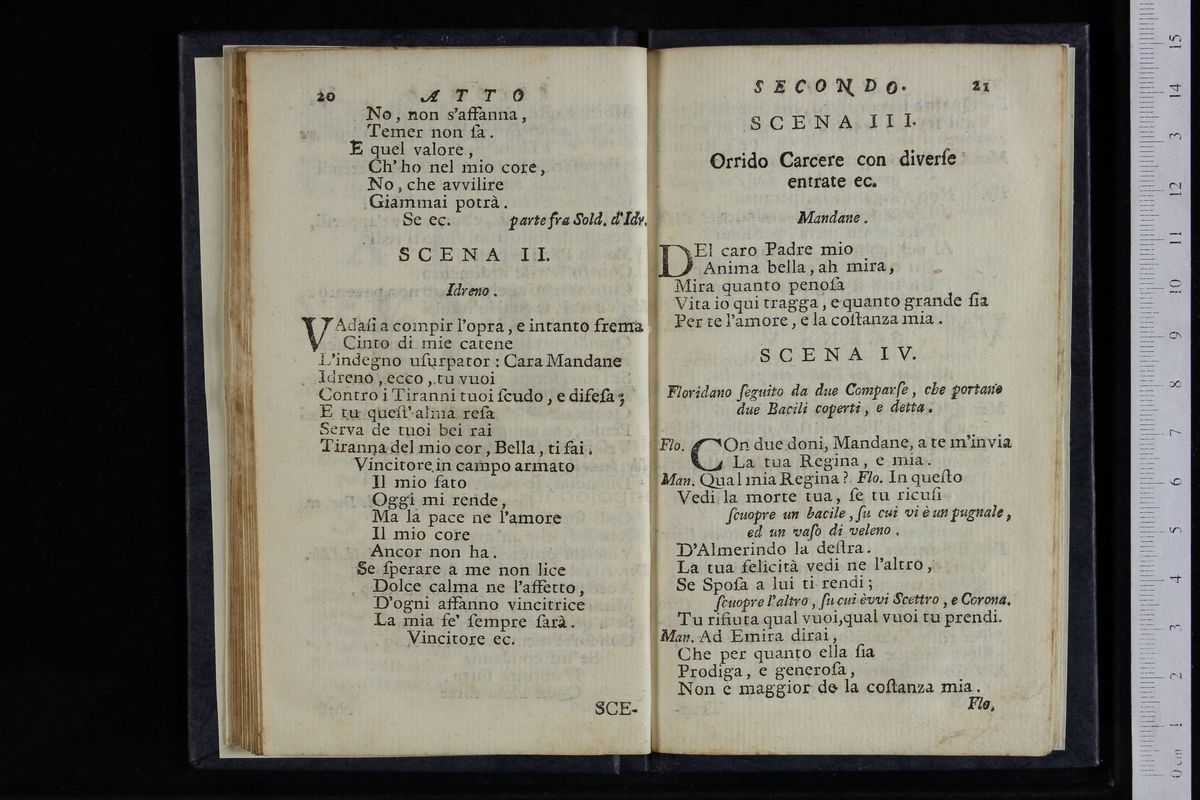 20 ATTO
No, non s'affanna,
Temer non ſa.
E quel valore,
Ch'ho nel mio core,
No, che avvilire
Giammai potrà.
Se ec. parte fra Sold. d'Idr.
SCENA II.
Idreno.
VAdaſi a compir l'opra, e intanto frema
Cinto di mie catene
L'indegno uſurpator: Cara Mandane
Idreno, ecco, tu vuoi
Contro i Tiranni tuoi ſcudo, e difeſa;
E tu queſt'alma reſa
Serva de tuoi bei rai
Tiranna del mio cor, Bella, ti fai.
Vincitore in campo armato
Il mio fato
Oggi mi rende,
Ma la pace ne l'amore
Il mio core
Ancor non ha.
Se ſperare a me non lice
Dolce calma ne l'affetto,
D'ogni affanno vincitrice
La mia fe' ſempre ſarà.
Vincitore ec.
SCE-
SECONDO. 21
SCENA III.
Orrido Carcere con diverſe
entrate ec.
Mandane.
DEl caro Padre mio
Anima bella, ah mira,
Mira quanto penoſa
Vita io qui tragga, e quanto grande ſia
Per te l'amore, e la coſtanza mia.
SCENA IV.
Floridano ſeguito da due Comparſe, che portano
due Bacili coperti, e detta.
Flo. COn due doni, Mandane, a te m'invia
La tua Regina, e mia.
Man. Qual mia Regina? Flo. In queſto
Vedi la morte tua, ſe tu ricuſi
ſcuopre un bacile, ſu cui vi è un pugnale,
ed un vaſo di veleno.
D'Almerindo la deſtra.
La tua felicità vedi ne l'altro,
Se Spoſa a lui ti rendi;
ſcuopre l'altro, ſu cui èvvi Scettro, e Corona.
Tu rifiuta qual vuoi, qual vuoi tu prendi.
Man. Ad Emira dirai,
Che per quanto ella ſia
Prodiga, e generoſa,
Non e maggior de la coſtanza mia.
Flo.
15
14
13
12
11
10
9
8
7
6
5
4
3
2
1
0 cm